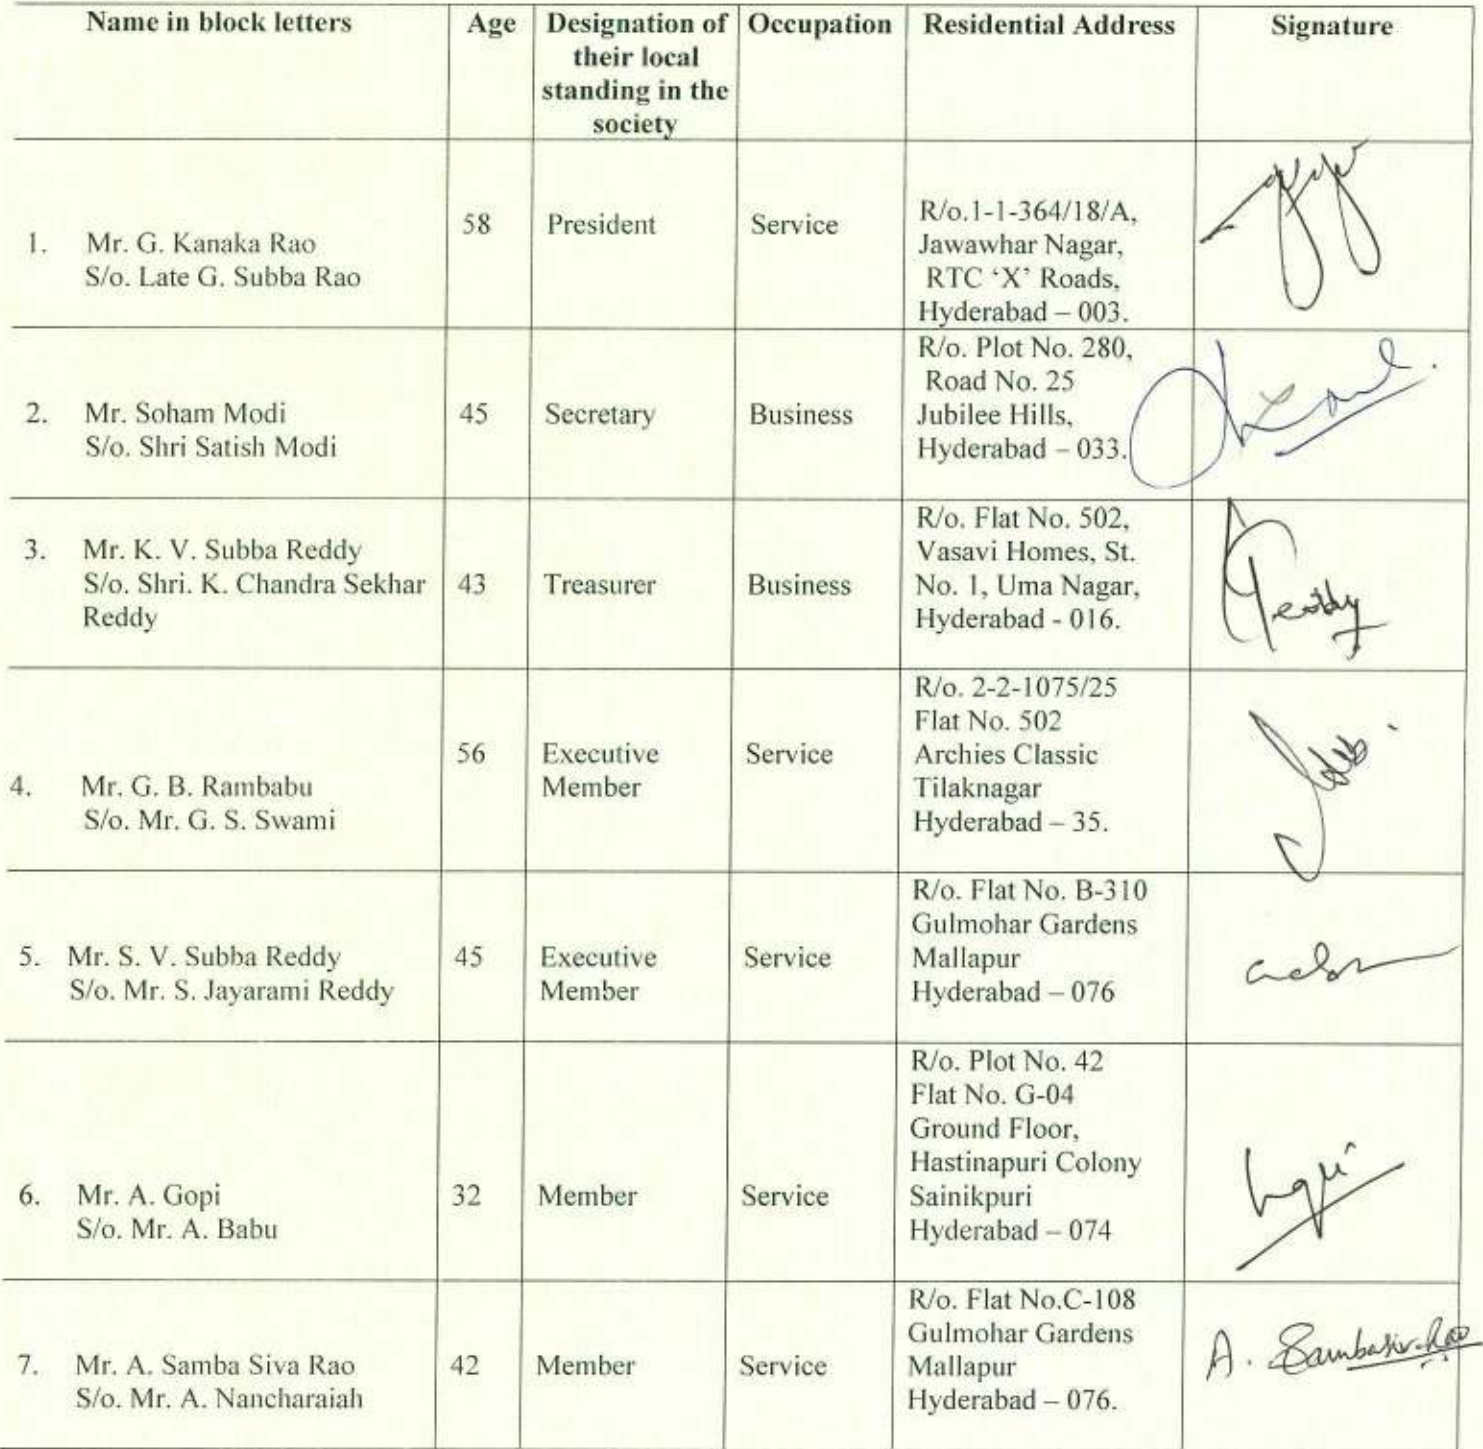 Name in block letters Age Designation of their local standing in the society Occupation Residential Address Signature
1. Mr. G. Kanaka Rao
S/o. Late G. Subba Rao
58 President Service
R/o.1-1-364/18/A,
Jawawhar Nagar,
RTC ‘X’ Roads,
Hyderabad – 003.
2. Mr. Soham Modi
S/o. Shri Satish Modi
45 Secretary Business
R/o. Plot No. 280,
Road No. 25
Jubilee Hills,
Hyderabad – 033.
3. Mr. K. V. Subba Reddy
S/o. Shri. K. Chandra Sekhar
Reddy
43 Treasurer Business
R/o. Flat No. 502,
Vasavi Homes, St.
No. 1, Uma Nagar,
Hyderabad - 016.
Reddy
4. Mr. G. B. Rambabu
S/o. Mr. G. S. Swami
56 Executive
Member
Service
R/o. 2-2-1075/25
Flat No. 502
Archies Classic
Tilaknagar
Hyderabad – 35.
5. Mr. S. V. Subba Reddy
S/o. Mr. S. Jayarami Reddy
45 Executive
Member
Service
R/o. Flat No. B-310
Gulmohar Gardens
Mallapur
Hyderabad – 076
6. Mr. A. Gopi
S/o. Mr. A. Babu
32 Member Service
R/o. Plot No. 42
Flat No. G-04
Ground Floor,
Hastinapuri Colony
Sainikpuri
Hyderabad – 074
7. Mr. A. Samba Siva Rao
S/o. Mr. A. Nancharaiah
42 Member Service
R/o. Flat No.C-108
Gulmohar Gardens
Mallapur
Hyderabad – 076.
A. Sambasiva Rao